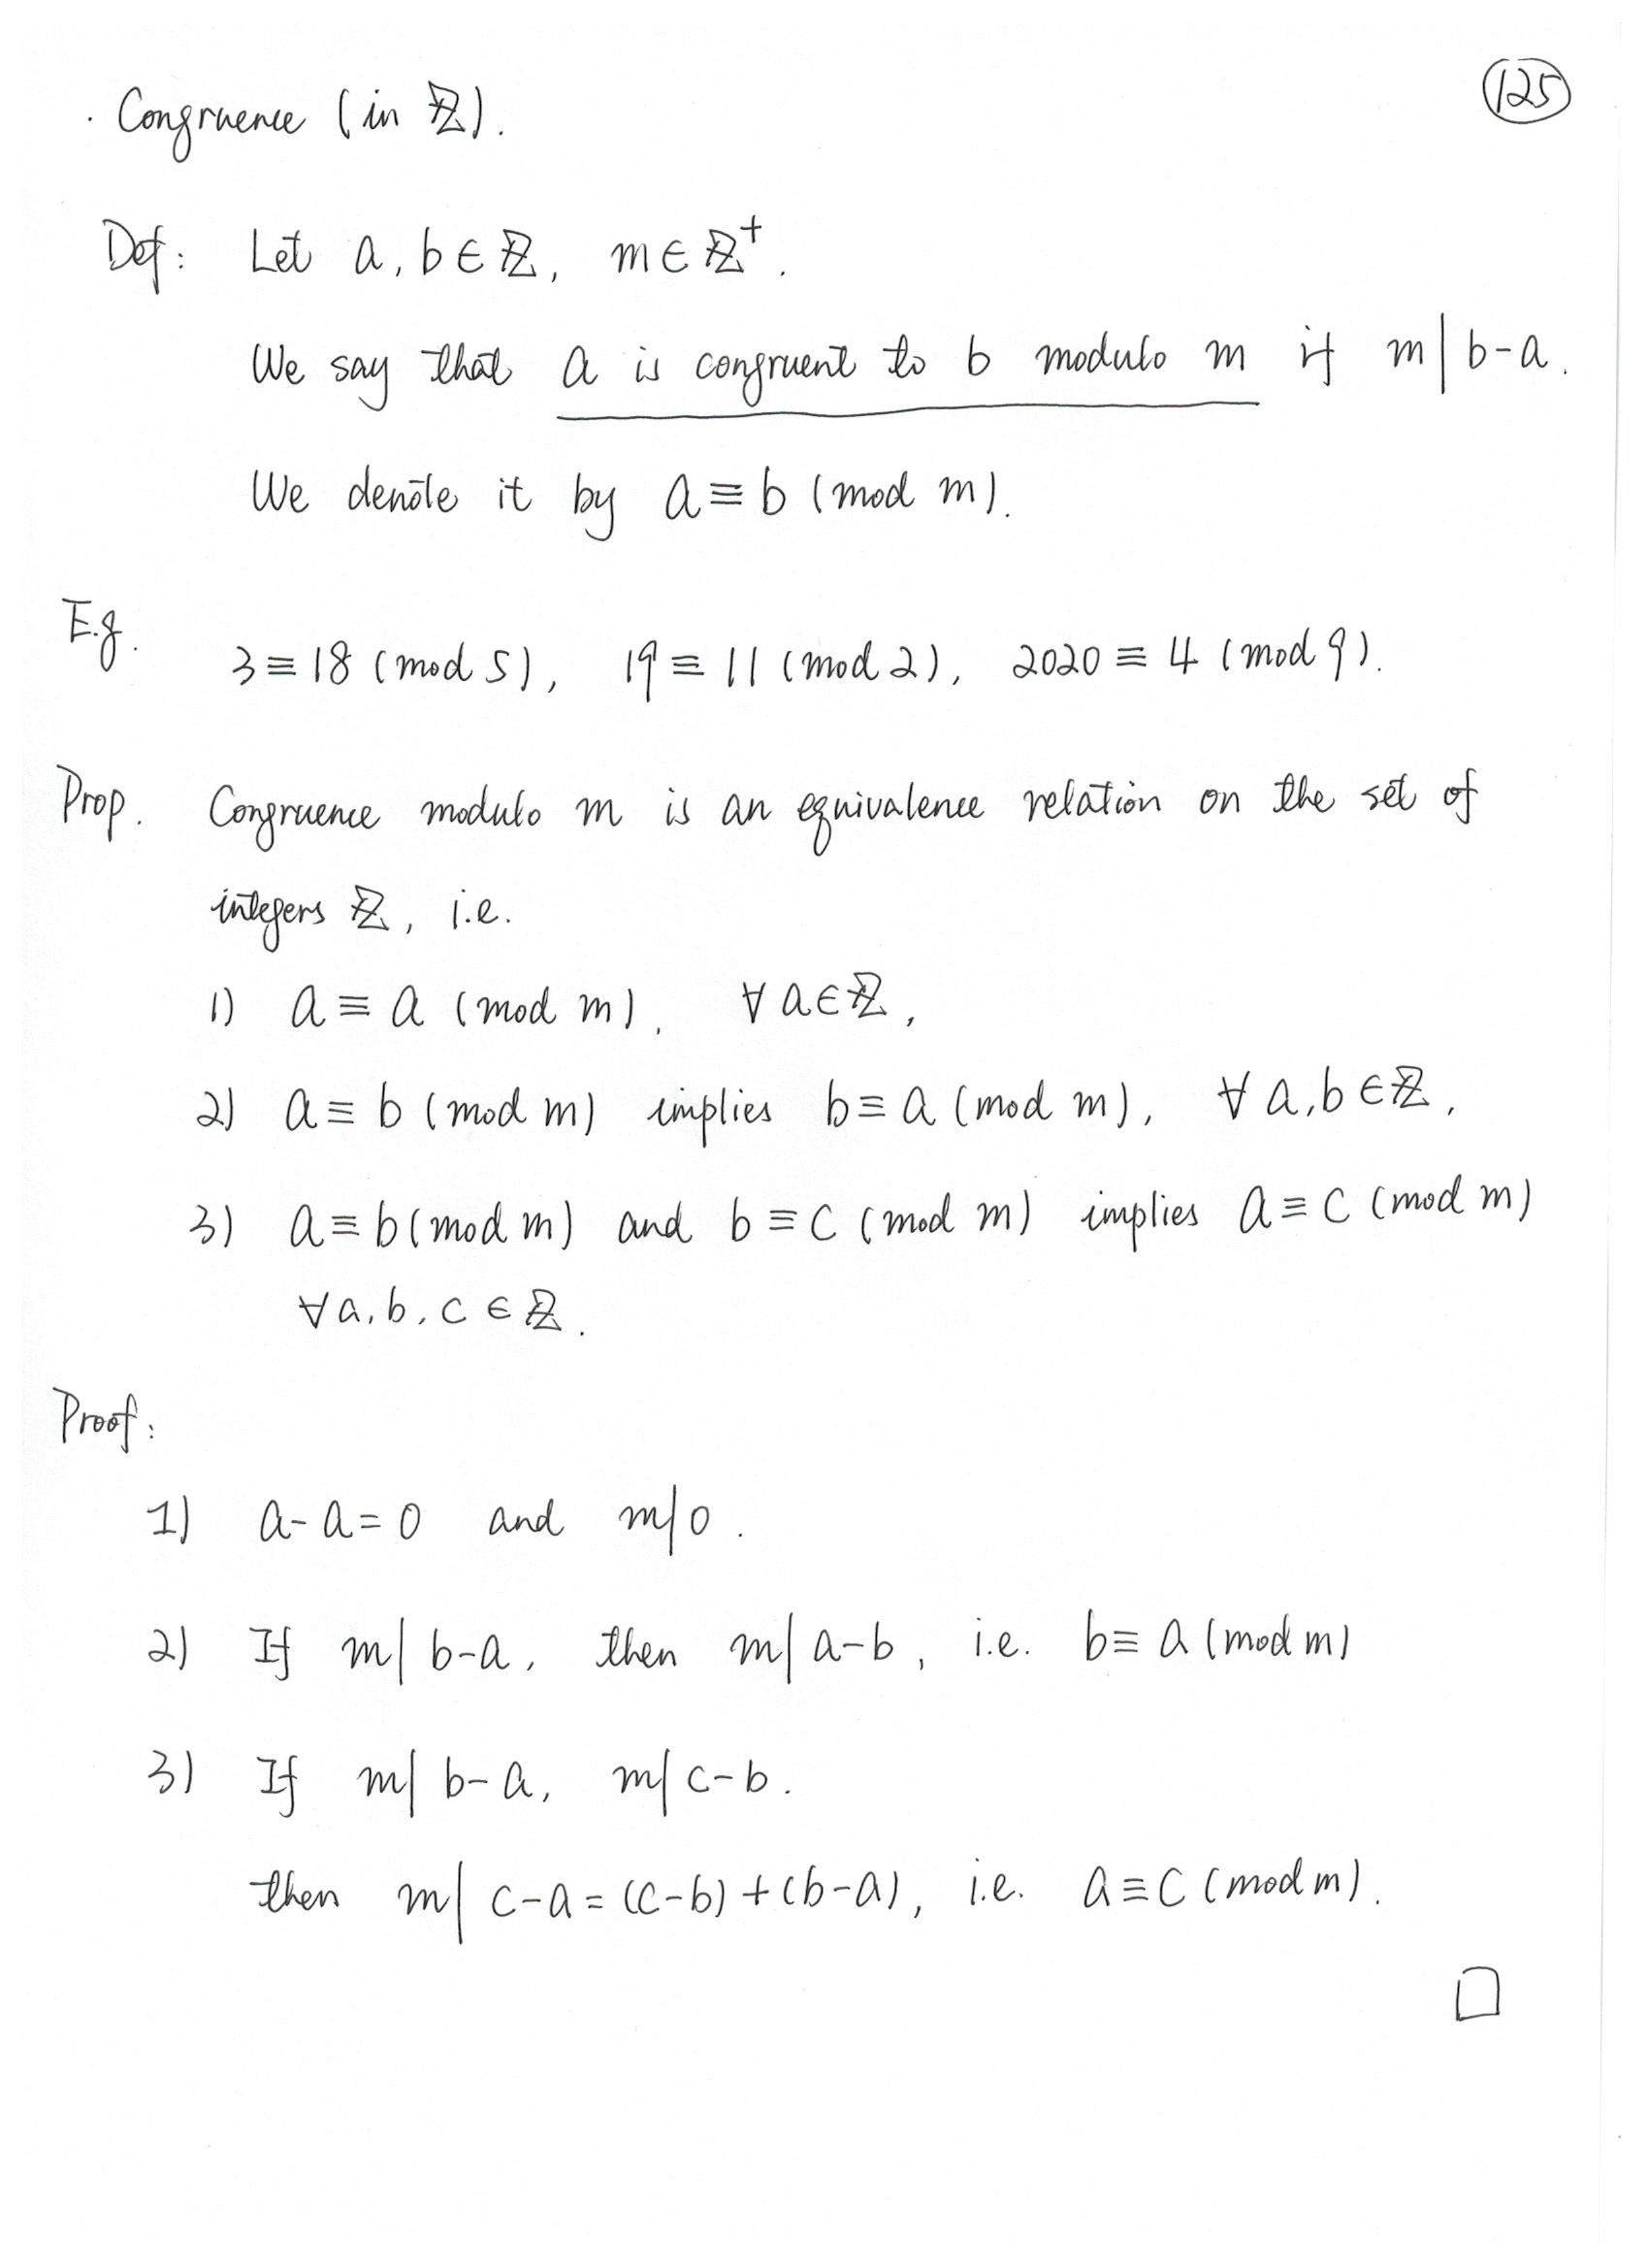 125
· Congruence (in ℤ).
Def: Let a, b ∈ ℤ, m ∈ ℤ⁺.
We say that a is congruent to b modulo m if m | b-a.
We denote it by a ≡ b (mod m).
E.g. 3 ≡ 18 (mod 5), 19 ≡ 11 (mod 2), 2020 ≡ 4 (mod 9).
Prop. Congruence modulo m is an equivalence relation on the set of
integers ℤ, i.e.
1) a ≡ a (mod m), ∀ a ∈ ℤ,
2) a ≡ b (mod m) implies b ≡ a (mod m), ∀ a, b ∈ ℤ,
3) a ≡ b (mod m) and b ≡ c (mod m) implies a ≡ c (mod m)
∀ a, b, c ∈ ℤ.
Proof:
1) a - a = 0 and m | 0.
2) If m | b-a, then m | a-b, i.e. b ≡ a (mod m)
3) If m | b-a, m | c-b.
then m | c-a = (c-b) + (b-a), i.e. a ≡ c (mod m).
□